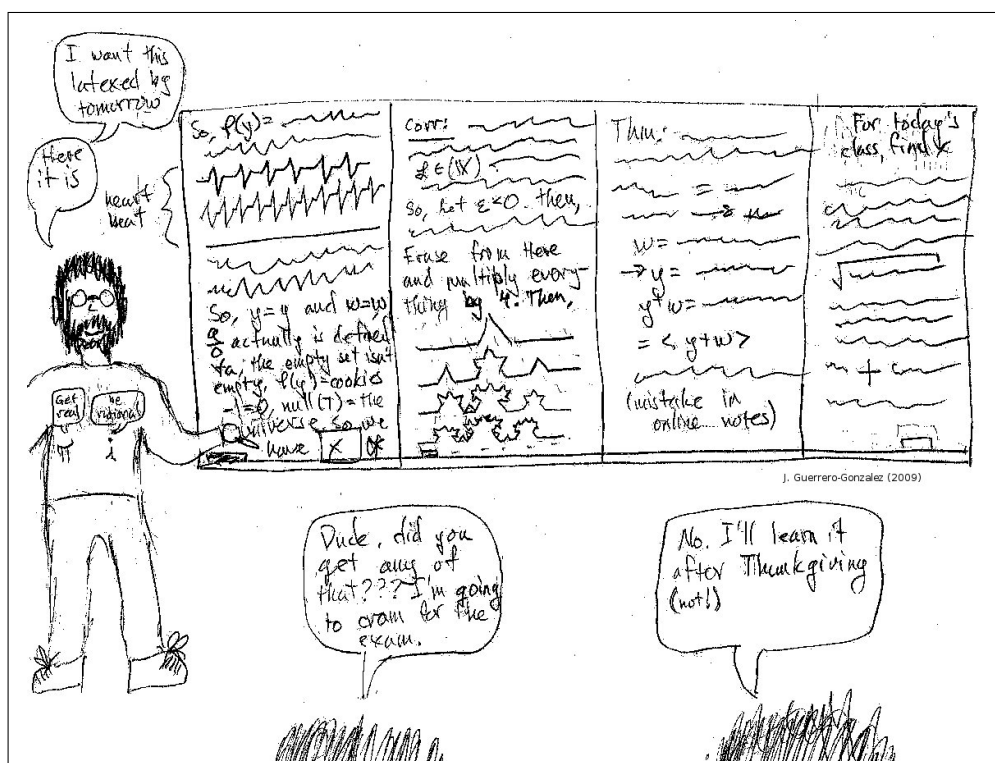 I want this
latexed by
tomorrow
Here
it is
heart
beat
Get
real
be
rational
π
i
So, f(y)=
So, y=y and w=w,
actually is defined
the empty set isn't
empty, f(y)=cookies
-1=0, null(T)=the
universe so we
have X of
Corr:
So, let ε<0. then,
Erase from Here
and multiply every-
thing by 4. Then,
Thm:
=
w=
→ y=
y+w=
= < y+w >
(mistake in
online notes)
For today's
class, find x
√
+
J. Guerrero-Gonzalez (2009)
Dude, did you
get any of
that??? I'm going
to cram for the
exam.
No. I'll learn it
after Thunkgiving
(not!)